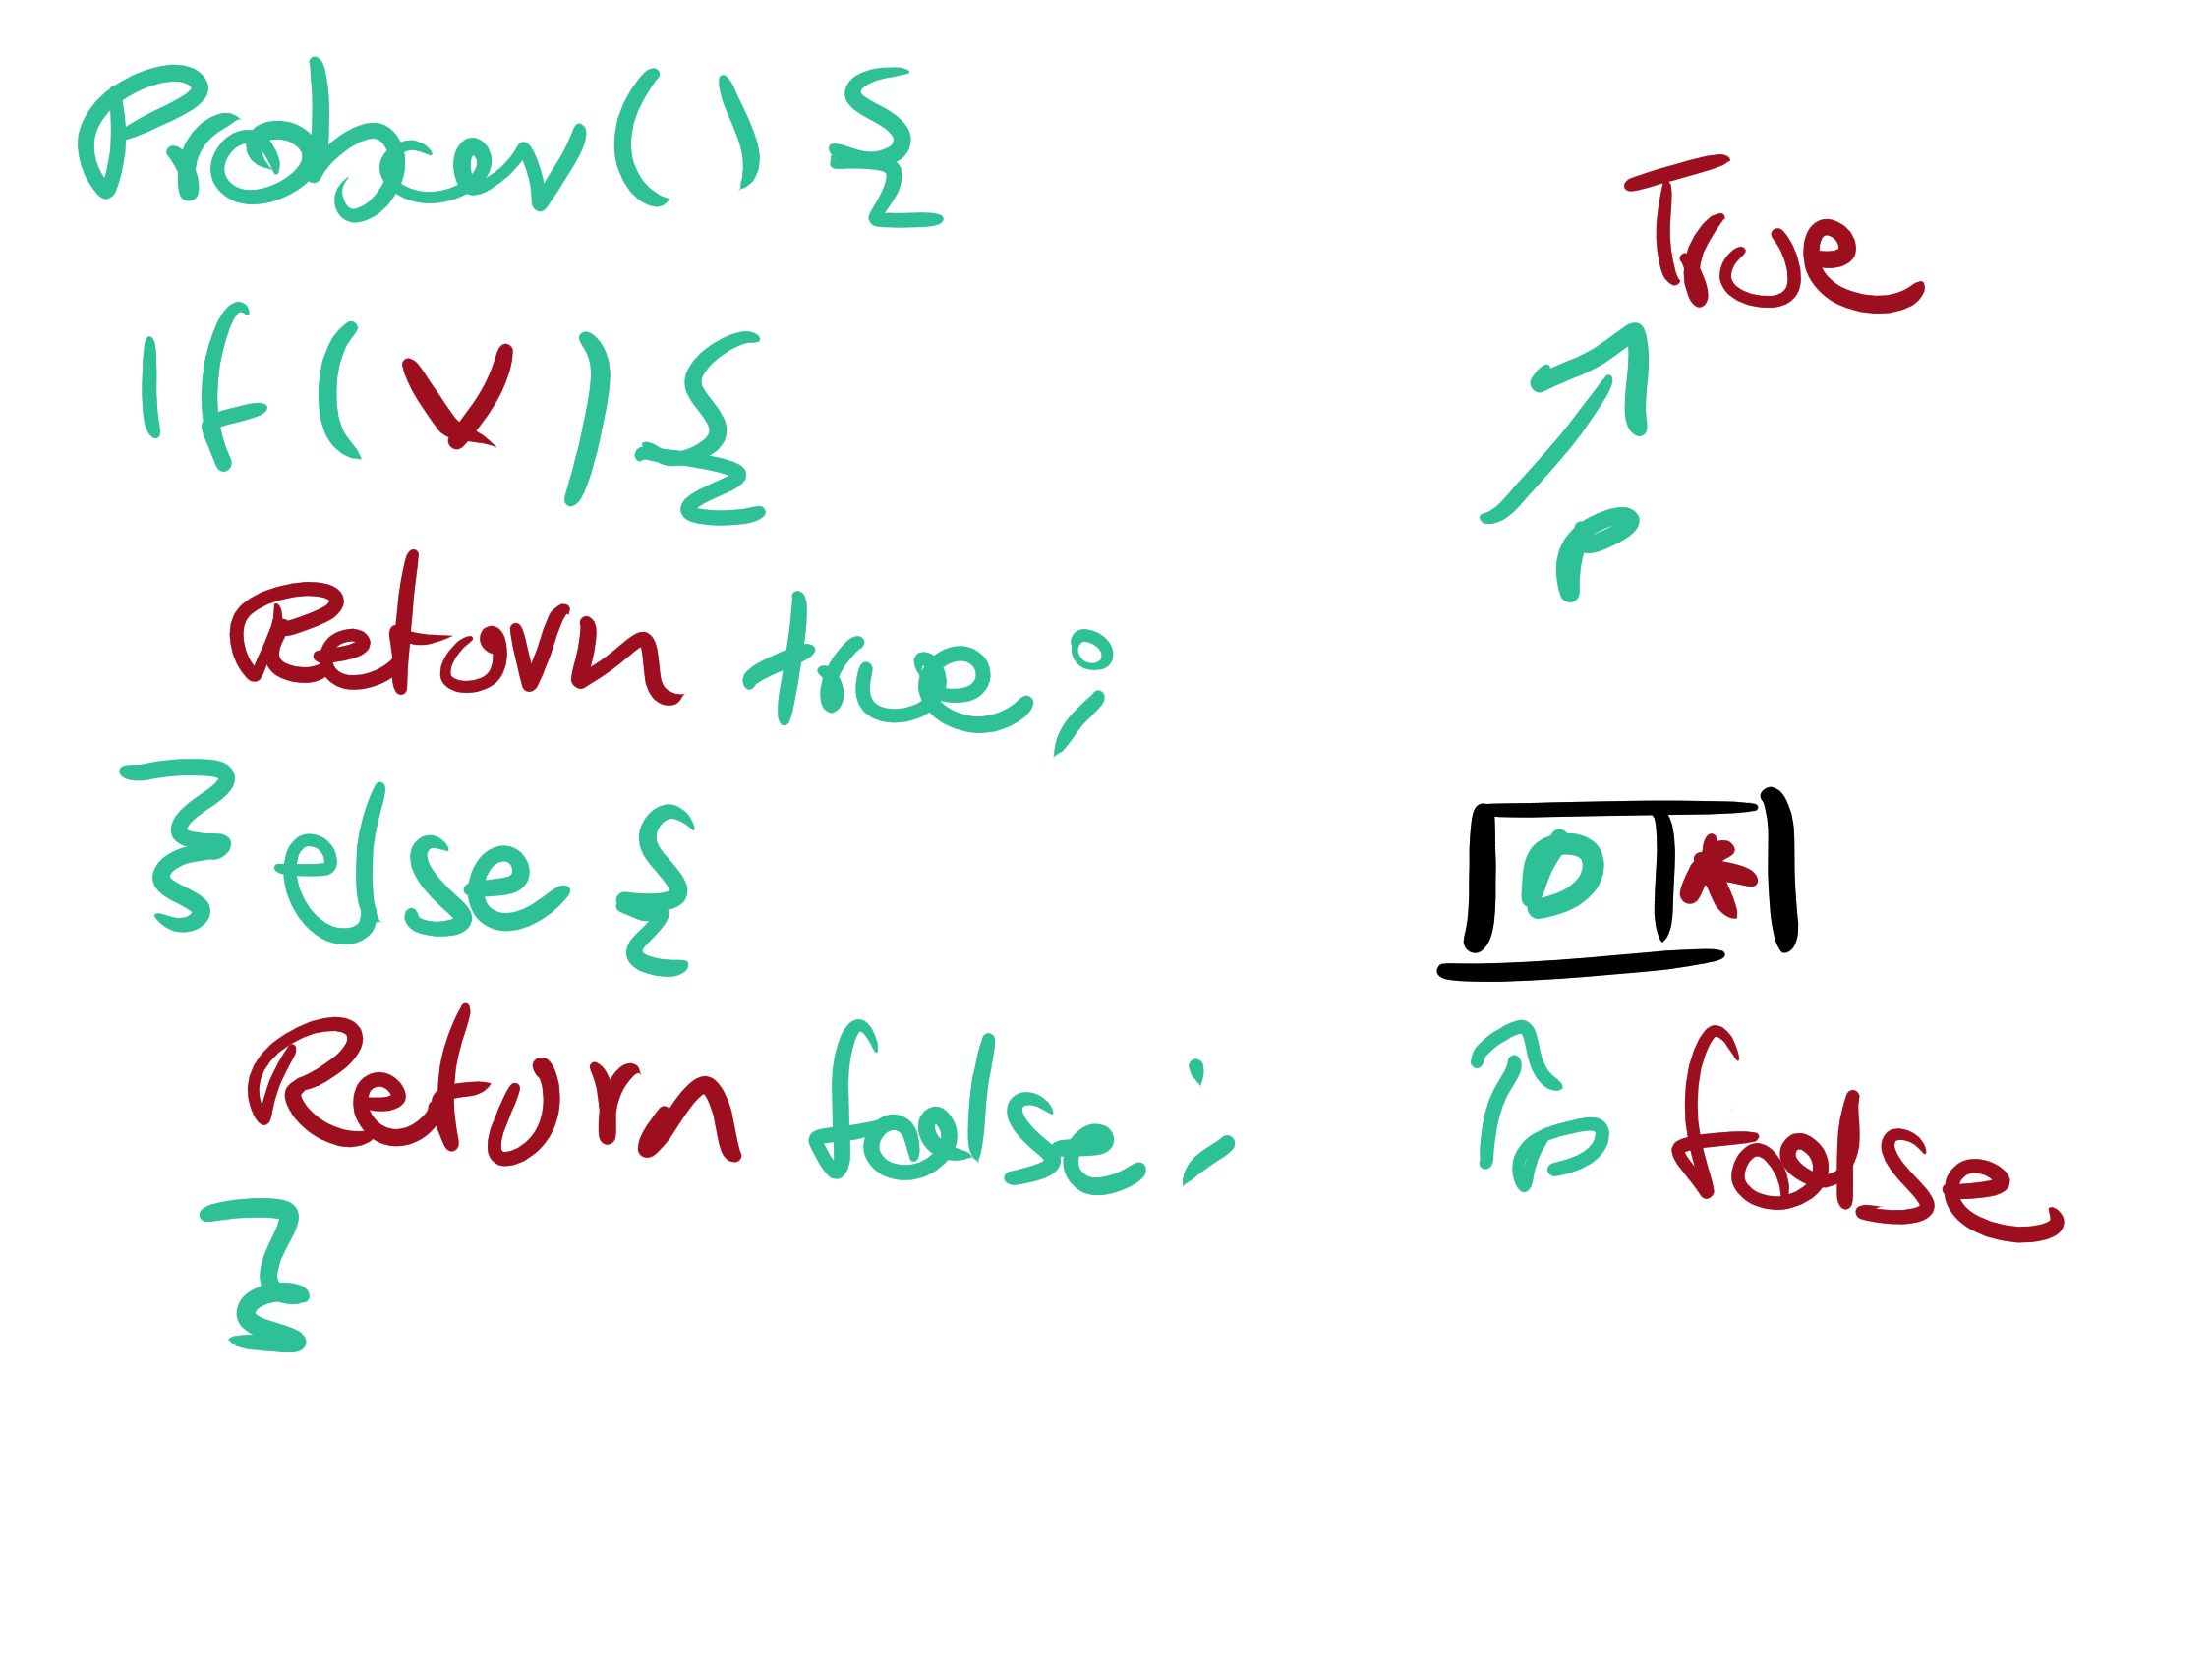 If (V) {
Return true;
} else {
Return false;
}
True
P
D *
P false